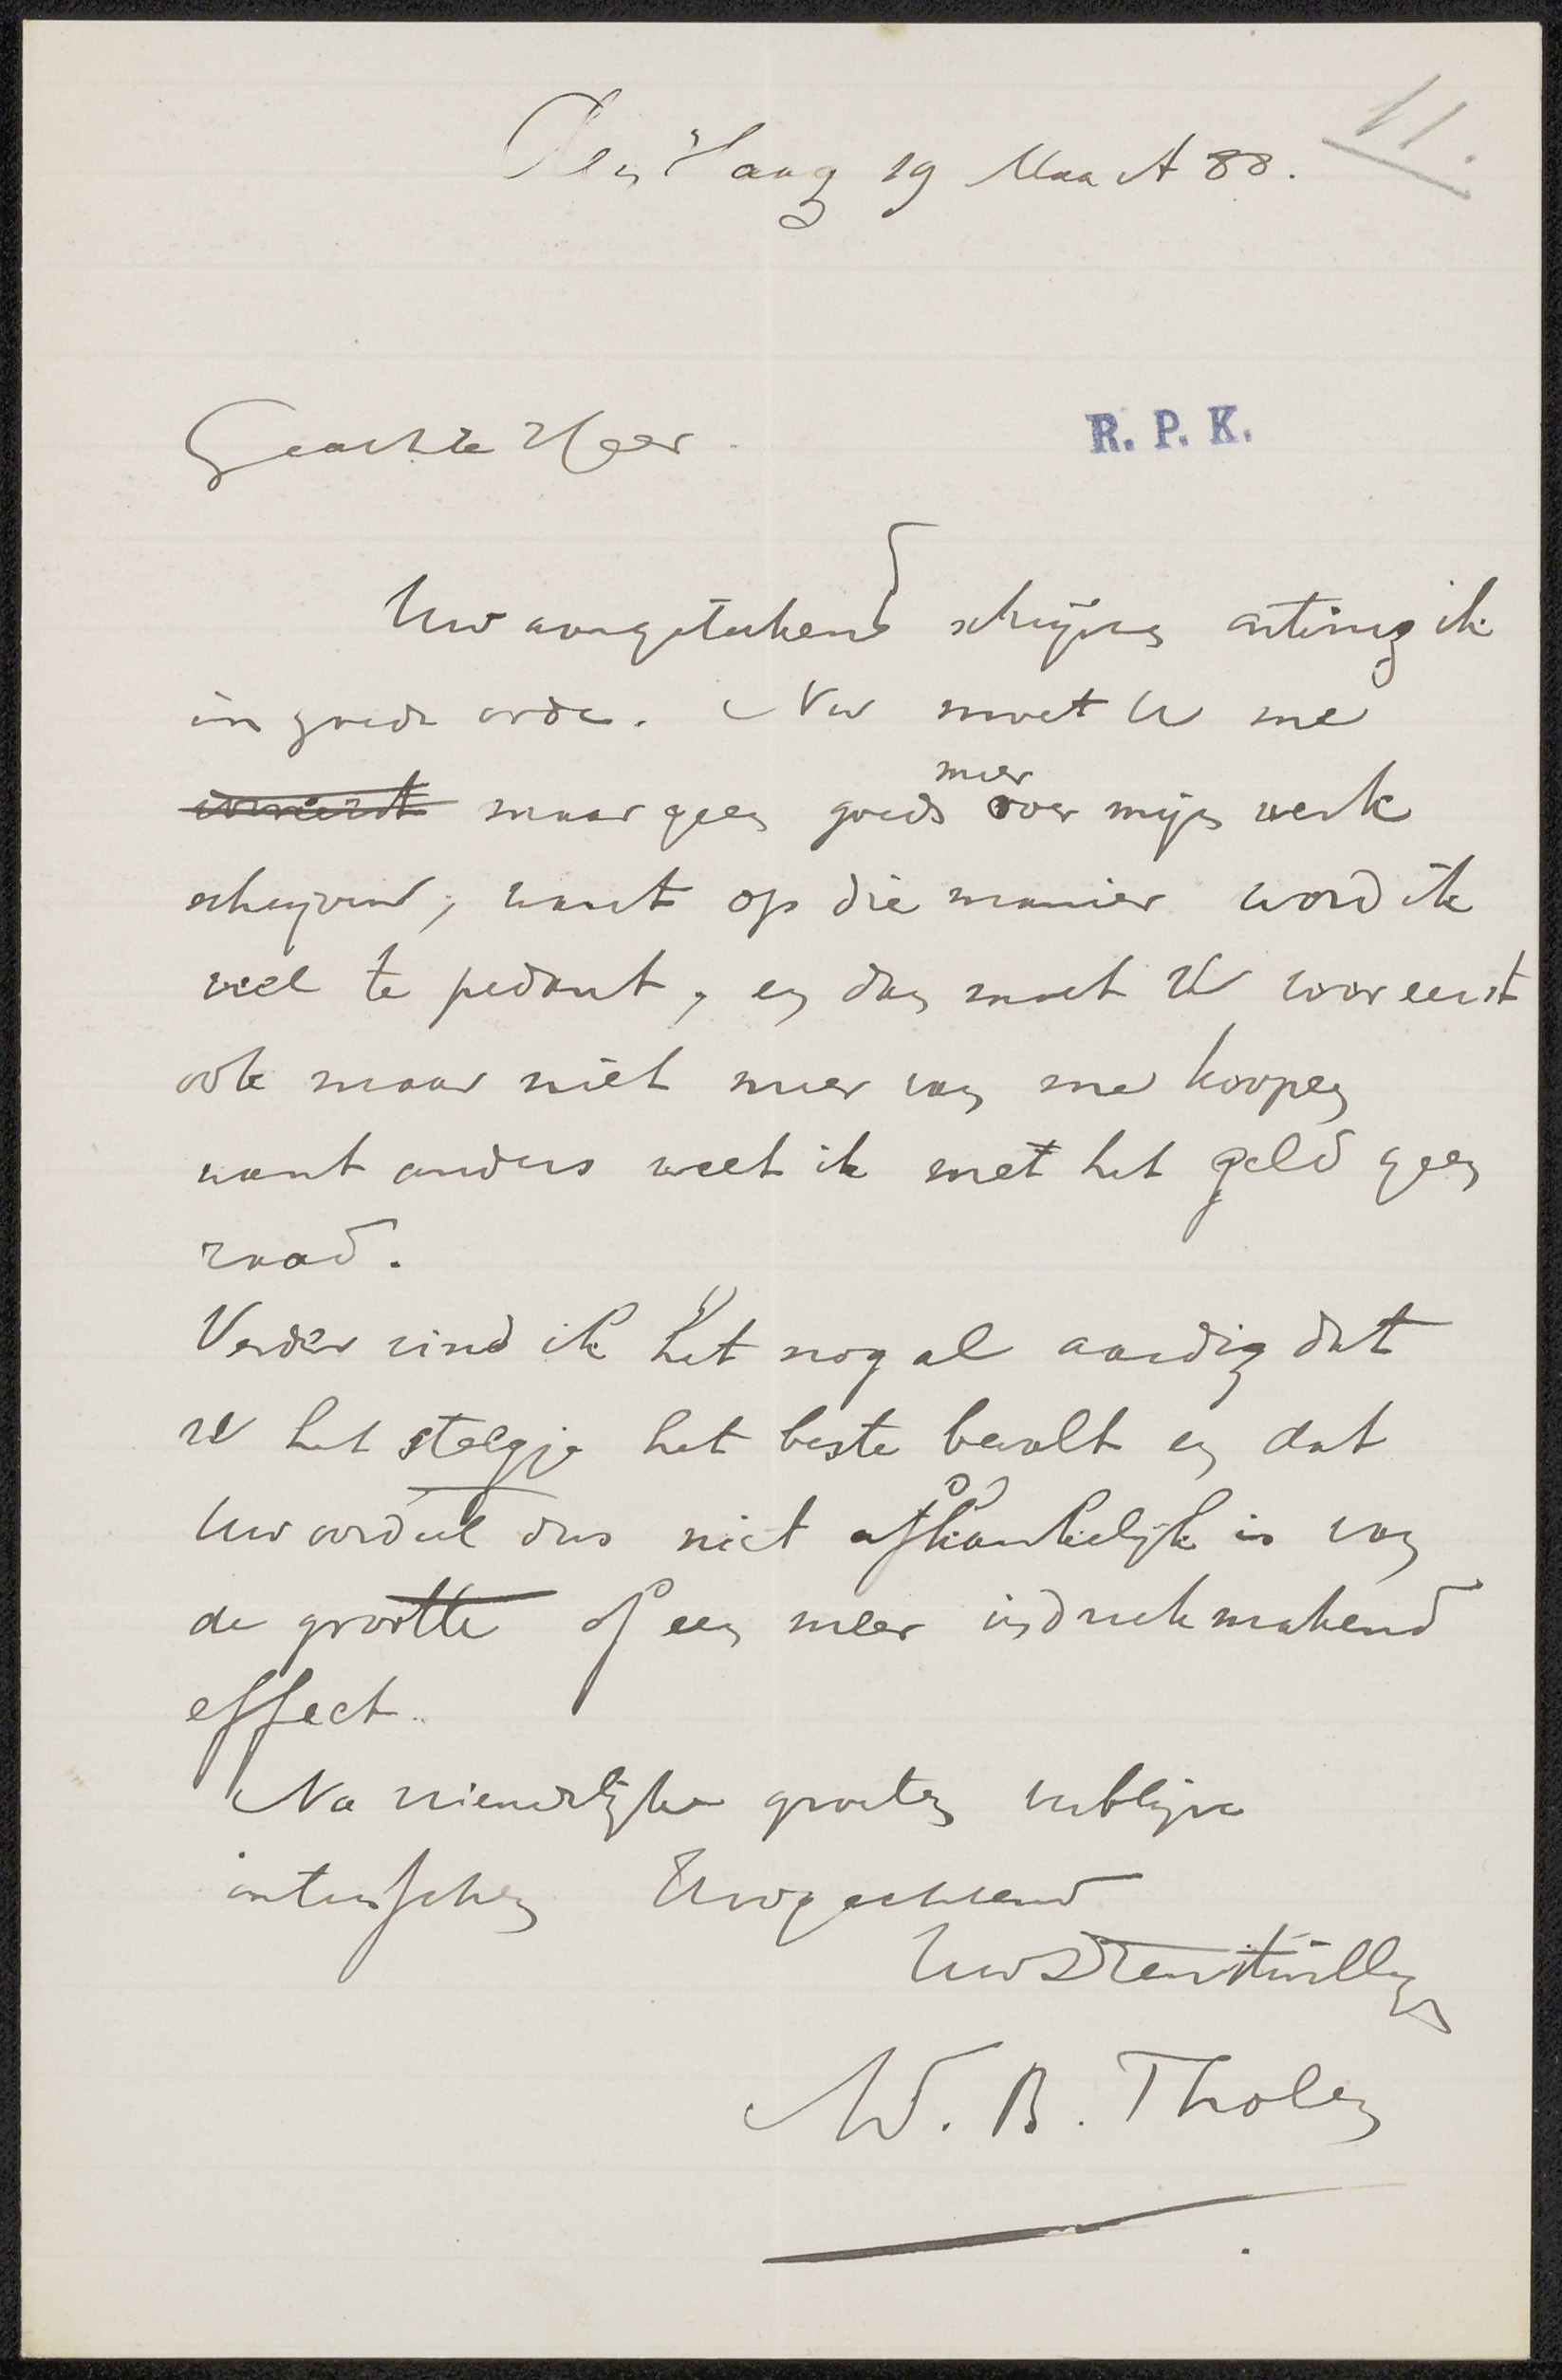 11.
Den Haag 19 Maart 88.
Geachte Heer.
R. P. K.
Uw aangetekend schrijven ontving ik
in goede orde. Nu moet U me
vooreerst maar geen goeds meer over mijn werk
schrijven, want op die manier word ik
veel te pedant, en dan moet U vooreerst
ook maar niet meer van me koopen
want anders weet ik met het geld geen
raad.
Verder vind ik het nog al aardig dat
U het steegje het beste bevalt en dat
Uw oordeel dus niet afhankelijk is van
de grootte of een meer indrukmakend
effect.
Na vriendelijke groeten verblijve
intusschen Hoogachtend
Uw Dienstwillige
W. B. Tholen